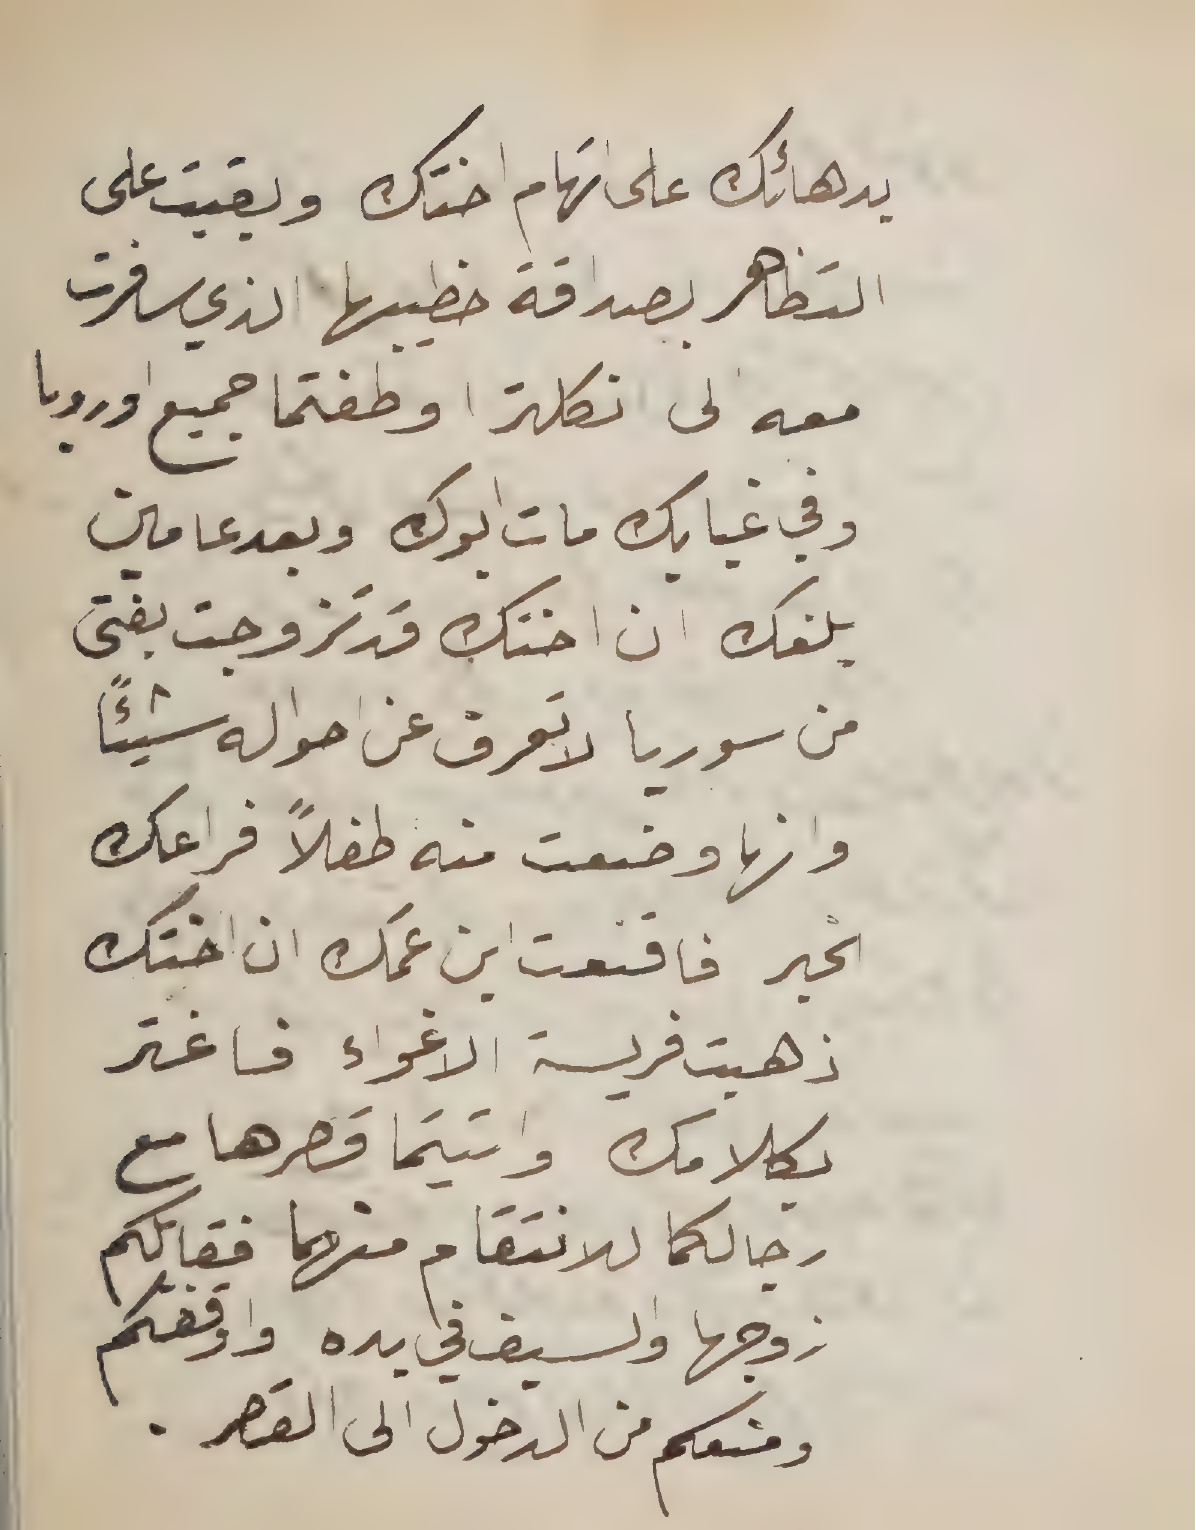 بدهائك على اتهام اختك وبقيت على
التظاهر بصداقة خطيبها الذي سافرت
معه الى انكلترا وطفتما جميع اوروبا
وفي غيابك مات ابوك وبعد عامين
بلغك ان اختك قد تزوجت بفتى
من سوريا لا تعرف عن احواله شيئاً
وانها وضعت منه طفلاً فراعك
الخبر فاقنعت ابن عمك ان اختك
ذهبت فريسة الاغواء فاغتر
بكلامك واتيتما قصرها مع
رجالكما للانتقام منهما فقابلكم
زوجها والسيف في يده واوقفكم
ومنعكم من الدخول الى القصر .